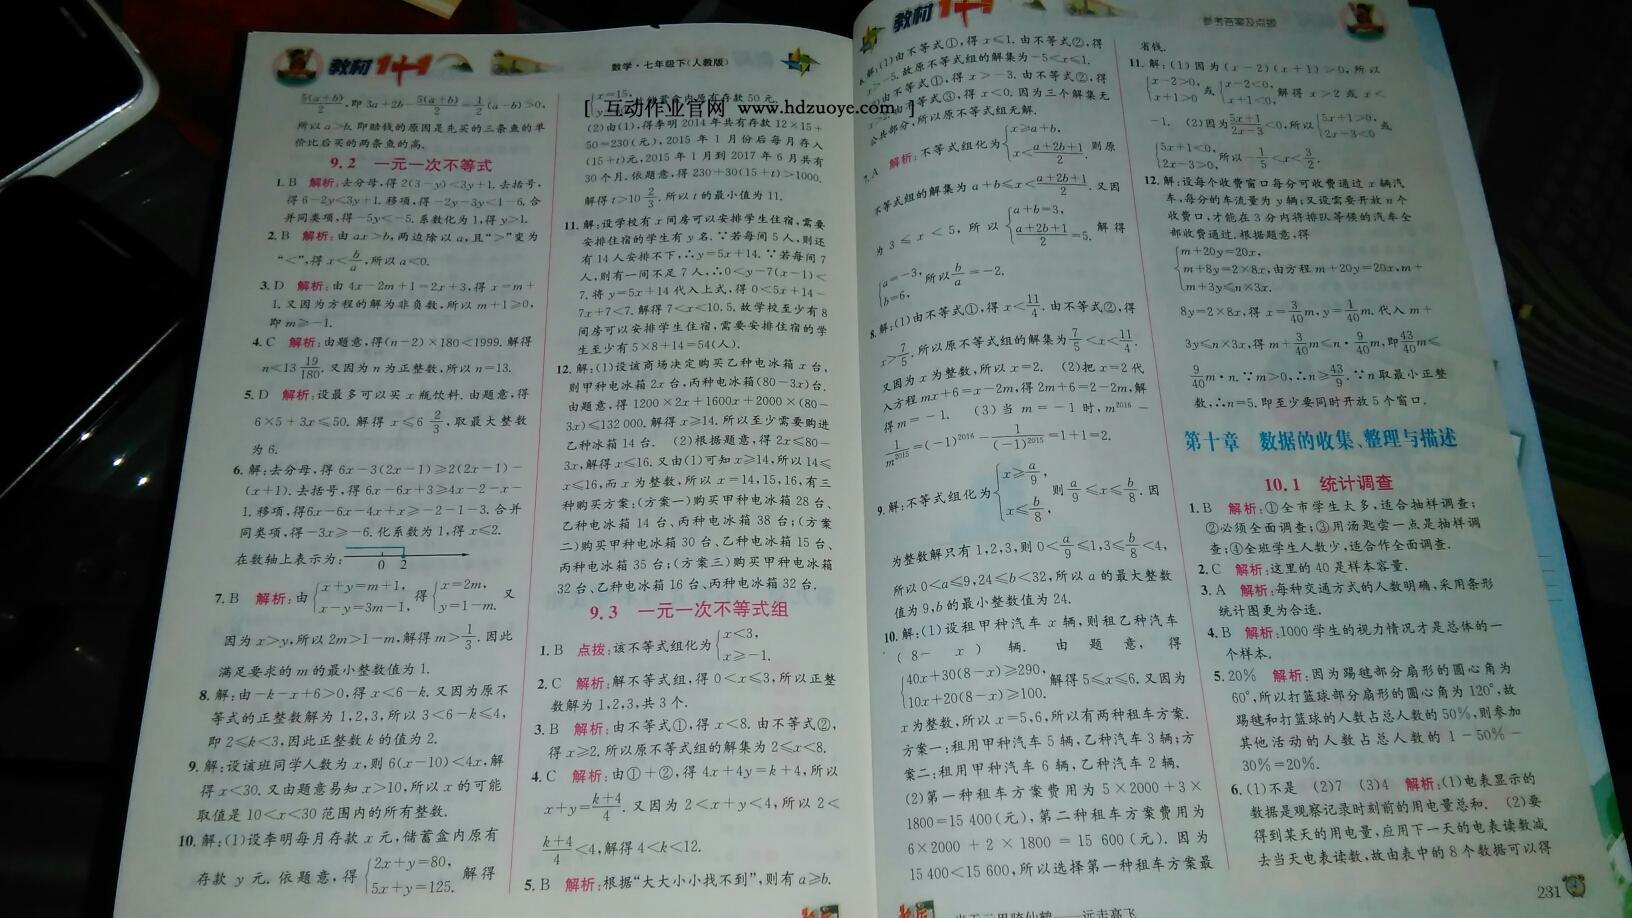 教材1+1
数学·七年级下(人教版)
5(a+b)/2,即3a+2b-5(a+b)/2=1/2(a-b)>0,
所以a>b,即赔钱的原因是先买的三条鱼的单
价比后买的两条鱼的高.
9.2 一元一次不等式
1. B 解析:去分母,得2(3-y)<3y+1.去括号,
得6-2y<3y+1.移项,得-2y-3y<1-6.合
并同类项,得-5y<-5.系数化为1,得y>1.
2. B 解析:由ax>b,两边除以a,且“>”变为
“<”,得x<b/a,所以a<0.
3. D 解析:由4x-2m+1=2x+3,得x=m+
1.又因为方程的解为非负数,所以m+1≥0,
即m≥-1.
4. C 解析:由题意,得(n-2)×180<1999.解得
n<13 19/180.又因为n为正整数,所以n=13.
5. D 解析:设最多可以买x瓶饮料.由题意,得
6×5+3x≤50.解得x≤6 2/3,取最大整数
为6.
6. 解:去分母,得6x-3(2x-1)≥2(2x-1)-
(x+1).去括号,得6x-6x+3≥4x-2-x-
1.移项,得6x-6x-4x+x≥-2-1-3.合并
同类项,得-3x≥-6.化系数为1,得x≤2.
在数轴上表示为: 0 2
7. B 解析:由{x+y=m+1, x-y=3m-1,得{x=2m, y=1-m.又
因为x>y,所以2m>1-m,解得m>1/3.因此
满足要求的m的最小整数值为1.
8. 解:由-k-x+6>0,得x<6-k.又因为原不
等式的正整数解为1,2,3,所以3<6-k≤4,
即2≤k<3,因此正整数k的值为2.
9. 解:设该班同学人数为x,则6(x-10)<4x,解
得x<30.又由题意易知x>10,所以x的可能
取值是10<x<30范围内的所有整数.
10. 解:(1)设李明每月存款x元,储蓄盒内原有
存款y元.依题意,得{2x+y=80, 5x+y=125.解得
{x=15,
储蓄盒内原有存款50元.
[ 互动作业官网 www.hdzuoye.com ]
(2)由(1),得李明2014年共有存款12×15+
50=230(元),2015年1月份后每月存入
(15+t)元,2015年1月到2017年6月共有
30个月.依题意,得230+30(15+t)>1000.
解得t>10 2/3.所以t的最小值为11.
11. 解:设学校有x间房可以安排学生住宿,需要
安排住宿的学生有y名.∵若每间5人,则还
有14人安排不下,∴y=5x+14.∵若每间7
人,则有一间不足7人,∴0<y-7(x-1)<
7.将y=5x+14代入上式,得0<5x+14-
7x+7<7.解得7<x<10.5.故学校至少有8
间房可以安排学生住宿,需要安排住宿的学
生至少有5×8+14=54(人).
12. 解:(1)设该商场决定购买乙种电冰箱x台,
则甲种电冰箱2x台,丙种电冰箱(80-3x)台.
由题意,得1200×2x+1600x+2000×(80-
3x)≤132 000.解得x≥14.所以至少需要购进
乙种冰箱14台. (2)根据题意,得2x≤80-
3x,解得x≤16.又由(1)可知x≥14,所以14≤
x≤16,而x为整数,所以x=14,15,16,有三
种购买方案:(方案一)购买甲种电冰箱28台、
乙种电冰箱14台、丙种电冰箱38台;(方案
二)购买甲种电冰箱30台、乙种电冰箱15台、
丙种电冰箱35台;(方案三)购买甲种电冰箱
32台、乙种电冰箱16台、丙种电冰箱32台.
9.3 一元一次不等式组
1. B 点拨:该不等式组化为{x<3, x≥-1.
2. C 解析:解不等式组,得0<x≤3,所以正整
数解为1,2,3,共3个.
3. B 解析:由不等式①,得x<8.由不等式②,
得x≥2.所以原不等式组的解集为2≤x<8.
4. C 解析:由①+②,得4x+4y=k+4,所以
x+y=(k+4)/4.又因为2<x+y<4,所以2<
(k+4)/4<4,解得4<k<12.
5. B 解析:根据“大大小小找不到”,则有a≥b.
教材1+1
参考答案及点拨
6. 解:(1)由不等式①,得x≤1.由不等式②,得
x>-5.故原不等式组的解集为-5<x≤1.
由不等式①,得x>-3.由不等式②,得
由不等式③,得x<0.因为三个解集无
公共部分,所以原不等式组无解.
7. A 解析:不等式组化为{x≥a+b, x<(a+2b+1)/2.则原
不等式组的解集为a+b≤x<(a+2b+1)/2.又因
为3≤x<5,所以{a+b=3, (a+2b+1)/2=5.解得
{a=-3, b=6,所以b/a=-2.
8. 解:(1)由不等式①,得x<11/4.由不等式②,得
x>7/5.所以原不等式组的解集为7/5<x<11/4.
又因为x为整数,所以x=2. (2)把x=2代
入方程mx+6=x-2m,得2m+6=2-2m,解
得m=-1. (3)当m=-1时,m²⁰¹⁶-
1/m²⁰¹⁵=(-1)²⁰¹⁶-1/(-1)²⁰¹⁵=1+1=2.
9. 解:不等式组化为{x≥a/9, x≤b/8,则a/9≤x≤b/8.因
为整数解只有1,2,3,则0<a/9≤1,3≤b/8<4,
所以0<a≤9,24≤b<32,所以a的最大整数
值为9,b的最小整数值为24.
10. 解:(1)设租甲种汽车x辆,则租乙种汽车
(8-x)辆.由题意,得
{40x+30(8-x)≥290, 10x+20(8-x)≥100.解得5≤x≤6.又因为
x为整数,所以x=5,6,所以有两种租车方案.
方案一:租用甲种汽车5辆,乙种汽车3辆;方
案二:租用甲种汽车6辆,乙种汽车2辆.
(2)第一种租车方案费用为5×2000+3×
1800=15 400(元),第二种租车方案费用为
6×2000+2×1800=15 600(元).因为
15 400<15 600,所以选择第一种租车方案最
省钱.
11. 解:(1)因为(x-2)(x+1)>0,所以
{x-2>0, x+1>0或{x-2<0, x+1<0,解得x>2或x<
-1. (2)因为(5x+1)/(2x-3)<0,所以{5x+1>0, 2x-3<0或
{5x+1<0, 2x-3>0,所以-1/5<x<3/2.
12. 解:设每个收费窗口每分可收费通过x辆汽
车,每分的车流量为y辆;又设需要开放n个
收费口,才能在3分内将排队等候的汽车全
部收费通过.根据题意,得
{m+20y=20x,
m+8y=2×8x,由方程m+20y=20x,m+
m+3y≤n×3x.
8y=2×8x,得x=3/40m,y=1/40m.代入m+
3y≤n×3x,得m+3/40m≤n·9/40m,即43/40m≤
9/40m·n.∵m>0,∴n≥43/9.∵n取最小正整
数,∴n=5.即至少要同时开放5个窗口.
第十章 数据的收集、整理与描述
10.1 统计调查
1. B 解析:①全市学生太多,适合抽样调查;
②必须全面调查;③用汤匙尝一点是抽样调
查;④全班学生人数少,适合作全面调查.
2. C 解析:这里的40是样本容量.
3. A 解析:每种交通方式的人数明确,采用条形
统计图更为合适.
4. B 解析:1000学生的视力情况才是总体的一
个样本.
5. 20% 解析:因为踢毽部分扇形的圆心角为
60°,所以打篮球部分扇形的圆心角为120°,故
踢毽和打篮球的人数占总人数的50%,则参加
其他活动的人数占总人数的1-50%-
30%=20%.
6. (1)不是 (2)7 (3)4 解析:(1)电表显示的
数据是观察记录时刻前的用电量总和. (2)要
得到某天的用电量,应用下一天的电表读数减
去当天电表读数,故由表中的8个数据可以得
231